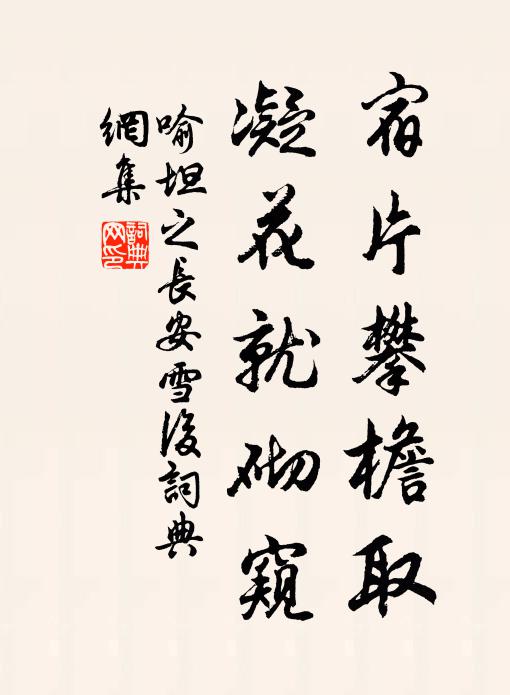 宿片攀檐取
凝花就砌窺
喻坦之長安雪後詞典
網集
詞典
网印